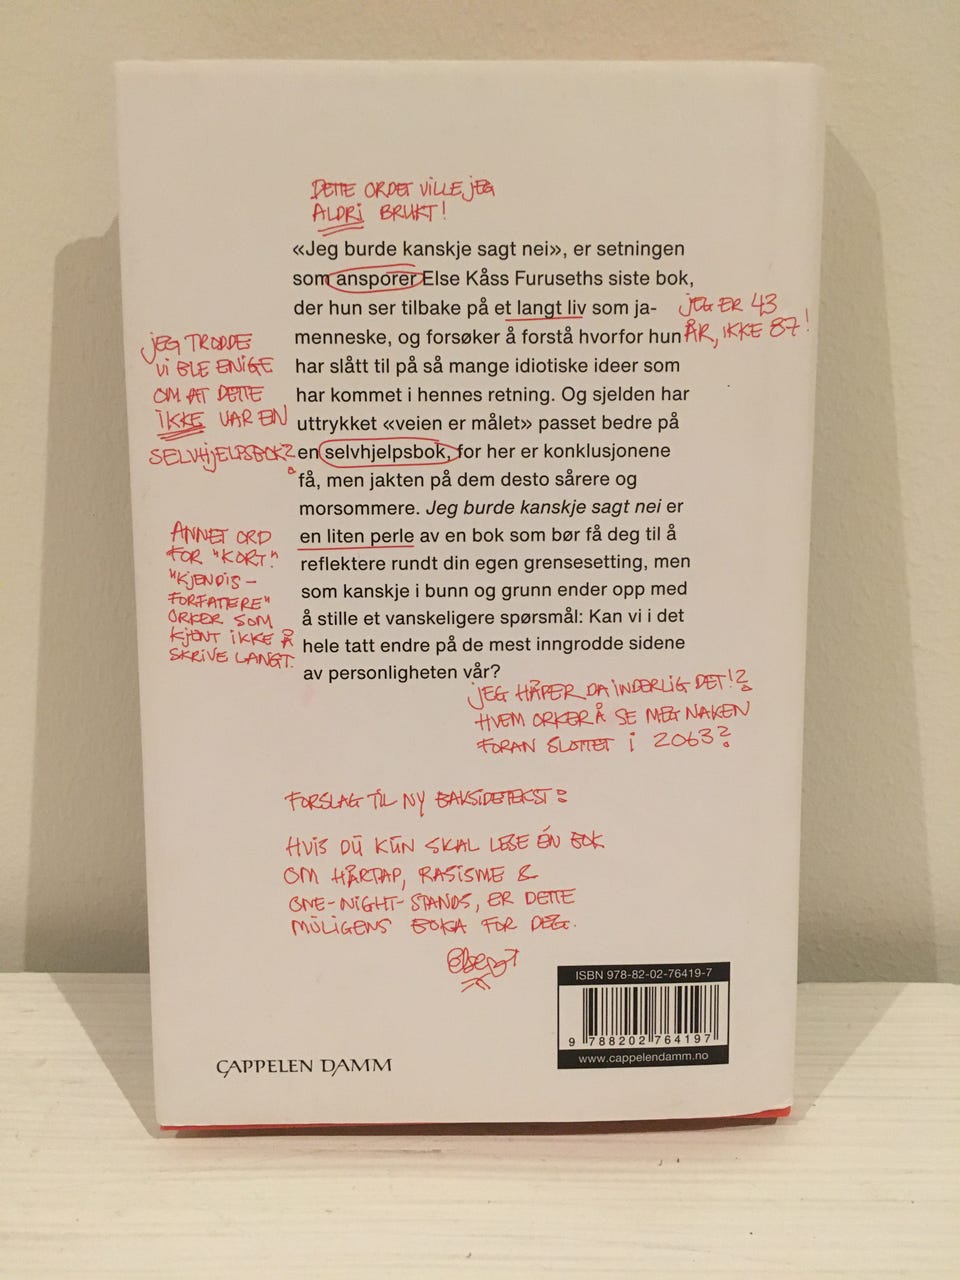 DETTE ORDET VILLE JEG
ALDRI BRUKT!
«Jeg burde kanskje sagt nei», er setningen
som ansporer Else Kåss Furuseths siste bok,
der hun ser tilbake på et langt liv som ja-
menneske, og forsøker å forstå hvorfor hun
har slått til på så mange idiotiske ideer som
har kommet i hennes retning. Og sjelden har
uttrykket «veien er målet» passet bedre på
en selvhjelpsbok, for her er konklusjonene
få, men jakten på dem desto sårere og
morsommere. Jeg burde kanskje sagt nei er
en liten perle av en bok som bør få deg til å
reflektere rundt din egen grensesetting, men
som kanskje i bunn og grunn ender opp med
å stille et vanskeligere spørsmål: Kan vi i det
hele tatt endre på de mest inngrodde sidene
av personligheten vår?
JEG ER 43
ÅR, IKKE 87!
JEG TRODDE
VI BLE ENIGE
OM AT DETTE
IKKE VAR EN
SELVHJELPSBOK?
ANNET ORD
FOR "KORT".
"KJENDIS-
FORFATTERE"
ORKER SOM
KJENT IKKE Å
SKRIVE LANGT.
JEG HÅPER DA INDERLIG DET!?
HVEM ORKER Å SE MEG NAKEN
FORAN SLOTTET I 2063?
FORSLAG TIL NY BAKSIDETEKST:
HVIS DU KUN SKAL LESE ÉN BOK
OM HÅRTAP, RASISME &
ONE-NIGHT-STANDS, ER DETTE
MULIGENS BOKA FOR DEG.
CAPPELEN DAMM
ISBN 978-82-02-76419-7
9 788202 764197
www.cappelendamm.no